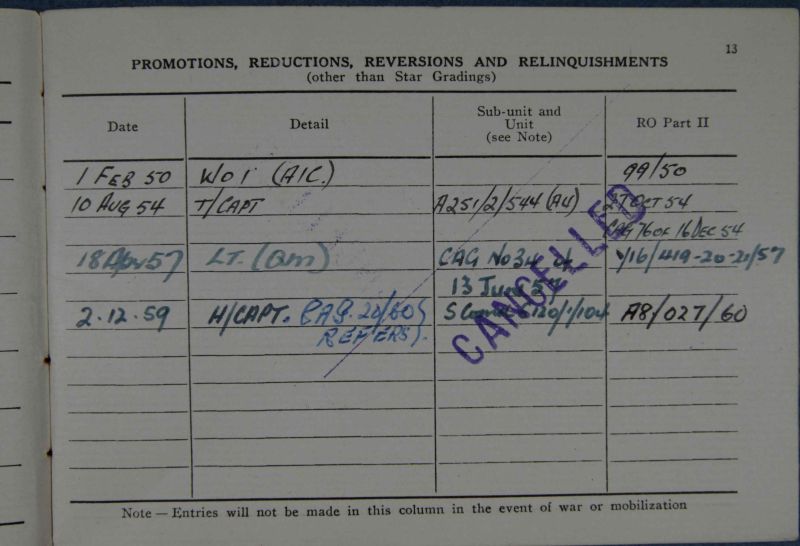 13
PROMOTIONS, REDUCTIONS, REVERSIONS AND RELINQUISHMENTS
(other than Star Gradings)
Date Detail Sub-unit and Unit (see Note) RO Part II
1 FEB 50 WO1 (AIC.) 99/50
10 AUG 54 T/CAPT A251/2/544 (A4) 27 OCT 54
CAG 76 OF 16 DEC 54
18 Apr 57 LT. (QM) CAG No 34 of /16/419-20-21/57
13 June 57
2.12.59 H/CAPT. CAG. 20/60 S Comd 6120/1/104 A8/027/60
REFERS).
CANCELLED
Note — Entries will not be made in this column in the event of war or mobilization